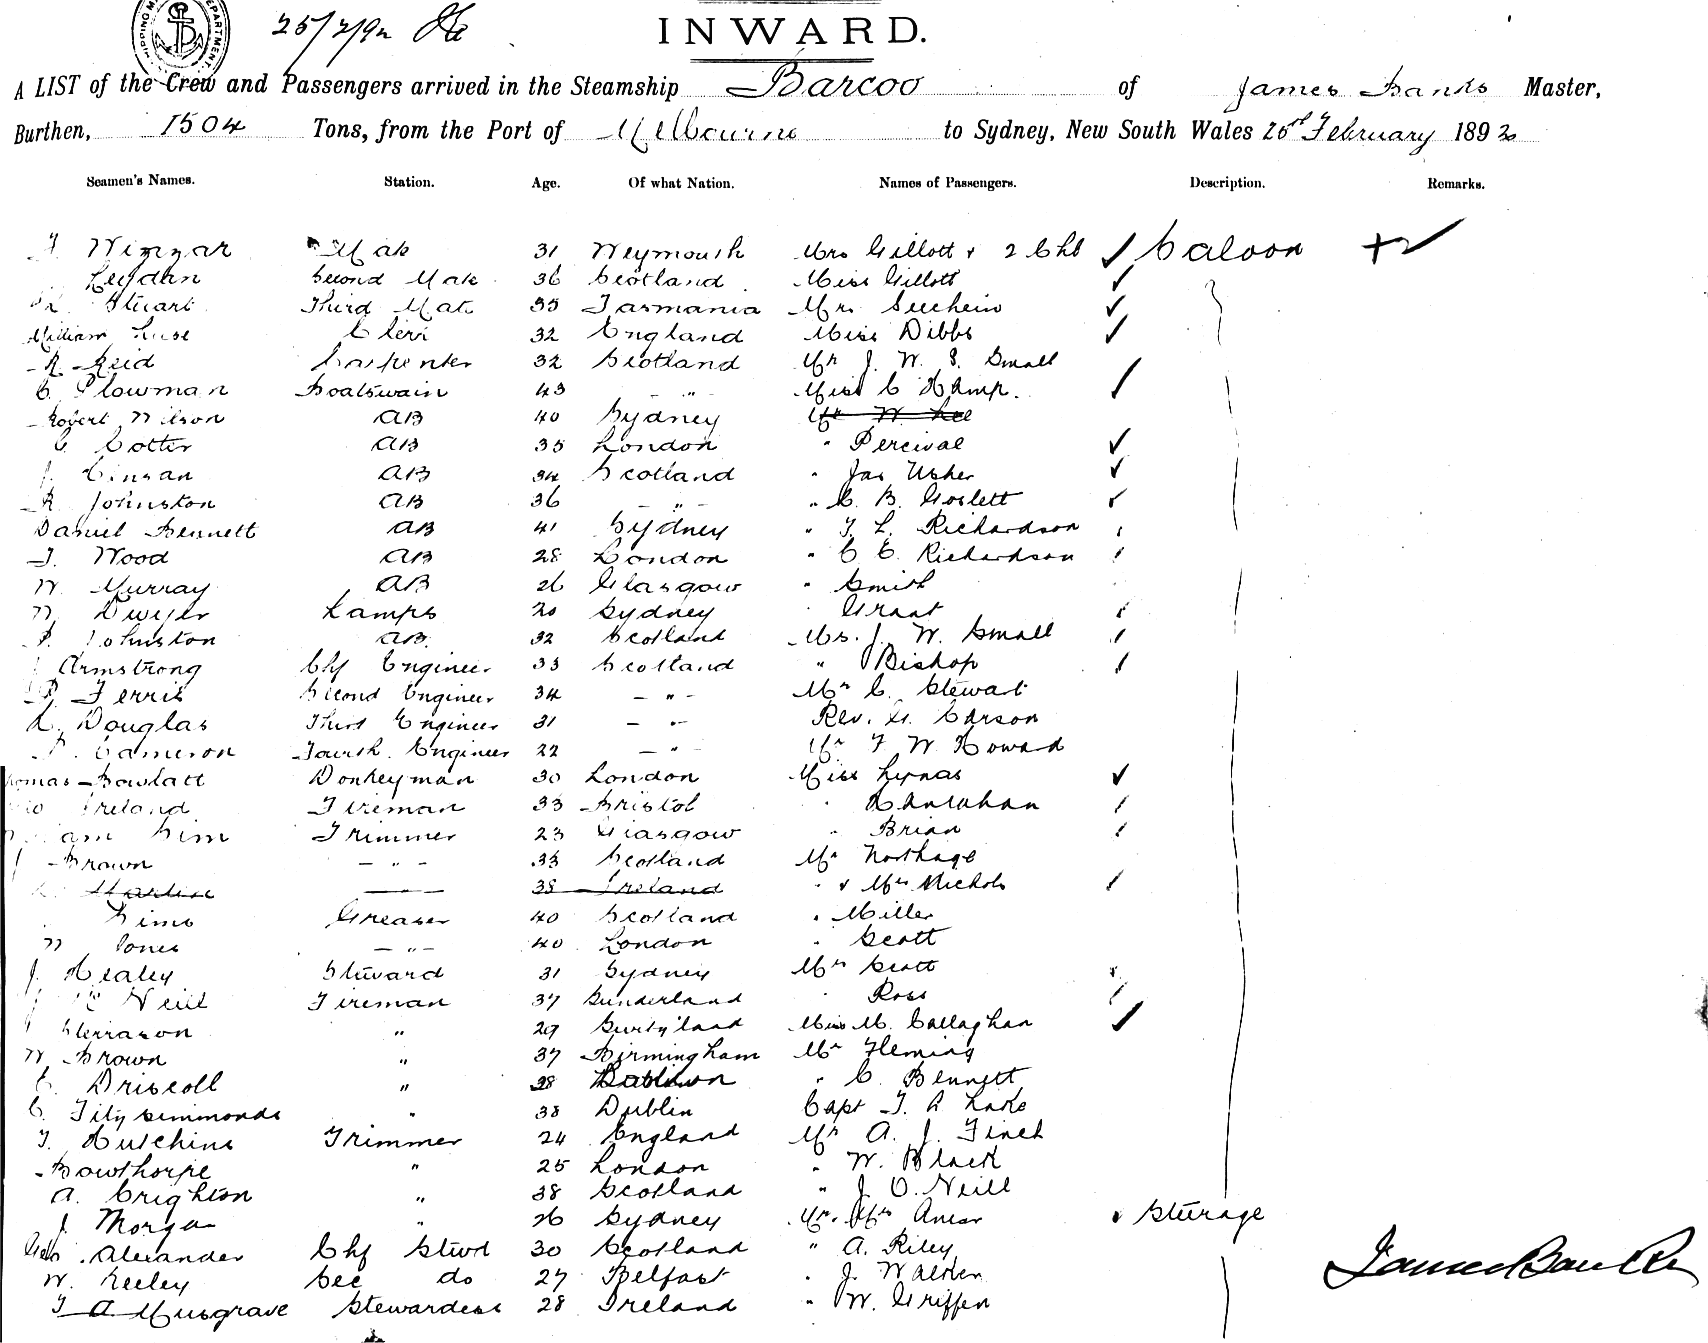 25/2/92
INWARD.
A LIST of the Crew and Passengers arrived in the Steamship Barcoo of James Banks Master,
Burthen, 1504 Tons, from the Port of Melbourne to Sydney, New South Wales February 1892
Seamen's Names. Station. Age. Of what Nation. Names of Passengers. Description. Remarks.
Mate 31 Weymouth Mrs Gillott + 2 Chd ✓ Saloon + ✓
Leydan Second Mate 36 Scotland Miss Gillott ✓
Stuart Third Mate 35 Tasmania Mr ✓
William 32 England Miss Dibbs ✓
R Reid Carpenter 32 Scotland Mr J. W. S. Small
C Plowman Boatswain 43 - " - Miss C Kemp. ✓
Robert Wilson AB 40 Sydney Mr W Lee
C. Cotter AB 35 London " Percival ✓
AB 34 Scotland " Jas Usher ✓
R Johnston AB 36 - " - " C. B. Goslett ✓
Daniel Bennett AB 41 Sydney " T. L. Richardson
T. Wood AB 28 London " C C. Richardson
W. Murray AB 26 Glasgow " Smith
W Dwyer Lamps 20 Sydney " Grant
Johnston AB. 32 Scotland Mrs. J. W. Small
Armstrong Chf Engineer 33 Scotland " Bishop
Ferris Second Engineer 34 - " - Mr C. Stewart
Douglas Third Engineer 31 - " - Rev. G. Carson
Cameron Fourth Engineer 22 - " - Mr F. W. Howard
Thomas Bowlatt Donkeyman 30 London Miss Lynas ✓
Ireland Fireman 33 Bristol " Hanrahan
Trimmer 23 Glasgow " Brian
Brown - " - 33 Scotland Mr Northage
Martin 38 Ireland " + Mrs Nichols
Sims Greaser 40 Scotland " Miller
W Jones - " - 40 London " Scott
J. Healey Steward 31 Sydney Mrs Scott
Mc Neill Fireman 37 Sunderland " Ross
" 29 Miss M. Callaghan ✓
W Brown " 37 Birmingham Mr Fleming
C. Driscoll " 38 " C. Bennett
C. Fitzsimmonds " 38 Dublin Capt T. A Lake
T. Hutchins Trimmer 24 England Mr A. J. Finch
Bowthorpe " 25 London " W. Black
A. Crighton " 38 Scotland " J. O. Neill
J Morgan " 26 Sydney Mr. Mrs ✓ Steerage
Geo. Alexander Chf Stwd 30 Scotland " A. Riley
W. Keeley Sec do 27 Belfast " J. Walker
T A Musgrave Stewardess 28 Ireland " W. Griffen
James Banks